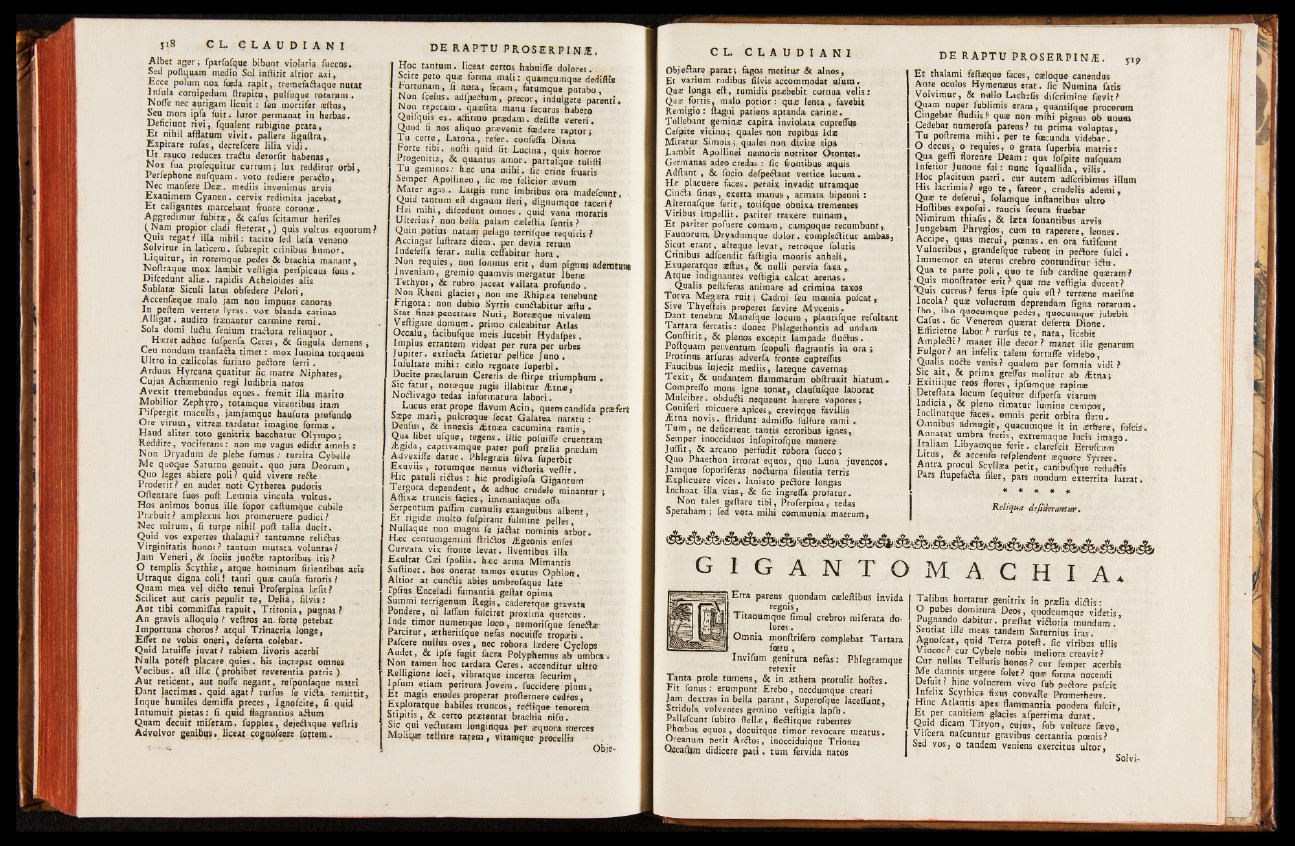 518 CL. CLAUDIANI
Albet ager; ſparſoſque bibunt violaria ſuccos.
Sed poſtquam medio Sol inſtitit altior axi,
Ecce polum nox fœda rapit, tremefactaque nutat
Inſula cornipedum ſtrepitu, pulſuque rotarum.
Noſſe nec aurigam licuit: ſeu mortifer æſtus,
Seu mors ipſa fuit. luror permanat in herbas.
Deficiunt rivi, ſqualent rubigine prata,
Et nihil afflatum vivit. pallere liguſtra,
Expirare roſas, decreſcere lilia vidi.
Ut rauco reduces tractu detorſit habenas,
Nox ſua proſequitur currum; lux redditur orbi,
Perſephone nuſquam. voto rediere peracto,
Nec manſere Deæ. mediis invenimus arvis
Exanimem Cyanen. cervix redimita jacebat,
Et caligantes marcebant fronte coronæ.
Aggredimur ſubitæ, & caſus ſcitamur heriles
(Nam propior cladi ſteterat,) quis vultus equorum?
Quis regat? illa nihil: tacito ſed læſa veneno
Solvitur in laticem. ſubrepit crinibus humor.
Liquitur, in roremque pedes & brachia manant,
Noſtraque mox lambit veſtigia perſpicuus fons.
Diſcedunt aliæ. rapidis Acheloides alis
Sublatæ Siculi latus obſedere Pelori,
Accenſæque malo jam non impune canoras
In peſtem vertere lyras. vox blanda carinas
Alligat. audito frænantur carmine remi.
Sola domi luctu ſenium tractura relinquor.
Hæret adhuc ſuſpenſa Ceres, & ſingula demens,
Ceu nondum tranſacta timet: mox lumina torquens
Ultro in cælicolas furiato pectore ferri.
Arduus Hyrcana quatitur ſic matre Niphates,
Cujus Achæmenio regi ludibria natos
Avexit tremebundus eques. fremit illa marito
Mobilior Zephyro, totamque virentibus iram
Diſpergit maculis, jamjamque hauſura profundo
Ore virum, vitreæ tardatur imagine formæ.
Haud aliter toto genitrix bacchatur Olympo;
Reddite, vociferans: non me vagus edidit amnis:
Non Dryadum de plebe ſumus: turrita Cybelle
Me quoque Saturno genuit. quo jura Deorum,
Quo leges abiere poli? quid vivere recte
Proderit? en audet noti Cytherea pudoris
Oſtentare ſuos poſt Lemnia vincula vultus.
Hos animos bonus ille ſopor caſtumque cubile
Præbuit? amplexus hos promeruere pudici?
Nec mirum, ſi turpe nihil poſt talia ducit.
Quid vos expertes thalami? tantumne relictus
Virginitatis honos? tantum mutata voluntas?
Jam Veneri, & ſociis junctæ raptoribus itis?
O templis Scythiæ, atque hominum ſitientibus acis
Utraque digna coli! tanti quæ cauſa furoris?
Quam mea vel dicto tenui Proſerpina læſit?
Scilicet aut caris pepulit te, Delia, ſilvis:
Aut tibi commiſſas rapuit, Tritonia, pugnas?
An gravis alloquio? veſtros an forte petebat
Importuna choros? atqui Trinacria longe,
Eſſet ne vobis oneri, deſerta colebat.
Quid latuiſſe juvat? rabiem livoris acerbi
Nulla poteſt placare quies. his increpat omnes
Vocibus. aſt illæ (prohibet reverentia patris)
Aut reticent, aut noſſe negant, reſponſaque matri
Dant lacrimas. quid agat? rurſus ſe victa remittit,
Inque humiles demiſſa preces, Ignoſcite, ſi quid
Intumuit pietas: ſi quid flagrantius actum
Quam decuit miſeram. ſupplex, dejectaque veſtris
Advolvor genibus. liceat cognoſcere ſortem.
DE RAPTU PROSERPINÆ.
Hoc tantum. liceat certos habuiſſe dolores.
Scire peto quæ forma mali: quamcumque dediſtis
Fortunam, ſi nota, feram, fatumque putabo,
Non ſcelus. adſpectum, precor, indulgete parenti.
Non repetam. quæſita manu ſecurus habeto
Quiſquis es. affirmo prædam. deſiſte vereri.
Quod ſi nos aliquo prævenit fœdere raptor;
Tu certe, Latona, refer. confeſſa Diana
Forte tibi. noſti quid ſit Lucina, quis horror
Progenitis, & quantus amor. partuſque tuliſti
Tu geminos: hæc una mihi. ſic crine fruaris
Semper Apollineo, ſic me felicior ævum
Mater agas. Largis tunc imbribus ora madeſcunt.
Quid tantum eſt dignum fleri, dignumque taceri?
Hei mihi, diſcedunt omnes. quid vana moraris
Ulterius? non bella palam cæleſtia ſentis?
Quin potius natam pelago terriſque requiris?
Accingar luſtrare diem. per devia rerum
Indefeſſa ferar. nulla ceſſabitur hora.
Non requies, non ſomnus erit, dum pignus ademtum
Inveniam, gremio quamvis mergatur Iberæ
Tethyos, & rubro jaceat vallata profundo.
Non Rheni glacies, non me Rhipæa tenebunt
Frigora: non dubio Syrtis cunctabitur æſtu.
Stet fines penetrare Noti, Boreæque nivalem
Veſtigare domum. primo calcabitur Atlas
Occaſu, facibuſque meis lucebit Hydaſpes.
Impius errantem videat per rura per urbes
Jupiter. extincta ſatietur pellice Juno.
Inſultate mihi: cælo regnate ſuperbi.
Ducite præclarum Cereris de ſtirpe triumphum.
Sic fatur, notæque jugis illabitur Ætnæ,
Noctivago tedas informatura labori.
Lucus erat prope flavum Acin, quem candida præfert
Sæpe mari, pulcroque ſecat Galatea natatu:
Denſus, & innexis Ætnæa cacumina ramis,
Qua libet uſque, tegens. illic poſuiſſe cruentam
Ægida, captivamque pater poſt prælia prædam
Advexiſſe datur. Phlegræis ſilva ſuperbit
Exuviis, totumque nemus victoria veſtit.
Hic patuli rictus: hic prodigioſa Gigantum
Tergora dependent, & adhuc crudele minantur;
Affixæ truncis facies, immaniaque oſſa
Serpentum paſſim cumulis exanguibus albent,
Et rigidæ multo ſuſpirant fulmine pelles,
Nullaque non magni ſe jactat nominis arbor.
Hæc centumgemini ſtrictos Ægeonis enſes
Curvata vix fronte levat. liventibus illa
Exultat Cæi ſpoliis. hæc arma Mimantis
Suſtinet. hos onerat ramos exutus Ophion.
Altior at cunctis abies umbroſaque late
Ipſius Enceladi fumantia geſtat opima
Summi terrigenum Regis, caderetque gravata
Pondere, ni laſſam fulciret proxima quercus.
Inde timor numenque loco, nemoriſque ſenectæ
Parcitur, ætheriiſque nefas nocuiſſe tropæis.
Paſcere nullus oves, nec robora lædere Cyclops
Audet, & ipſe fugit ſacra Polyphemus ab umbra.
Non tamen hoc tardata Ceres. accenditur ultro
Relligione loci, vibratque incerta ſecurim,
Ipſum etiam peritura Jovem. ſuccidere pinus,
Et magis enodes properat proſternere cedros,
Exploratque habiles truncos, rectique tenorem
Stipitis, & certo prætentat brachia niſu.
Sic qui vecturam longinqua per æquora merces
Molitur tellure ratem, vitamque procellis
Obje-
CL. CLAUDIANI
Objectare parat; fagos metitur & alnos,
Et varium rudibus ſilvis accommodat uſum.
Quæ longa eſt, tumidis præbebit cornua velis:
Quæ fortis, malo potior: quæ lenta, favebit
Remigio: ſtagni patiens aptanda carinæ.
Tollebant geminæ capita inviolata cupreſſus
Ceſpite vicino; quales non rupibus Idæ
Miratur Simois; quales non divite ripa
Lambit Apollinei nemoris nutritor Orontes.
Germanas adeo credas: ſic frontibus æquis
Adſtant, & ſocio deſpectant vertice lucum.
Hæ placuere faces. pernix invadit utramque
Cincta ſinus, exerta manus, armata bipenni:
Alternaſque ferit, totiſque obnixa trementes
Viribus impellit. pariter traxere ruinam,
Et pariter poſuere comam, campoque recumbunt,
Faunorum Dryadumque dolor. complectitur ambas,
Sicut erant, alteque levat, retroque ſolutis
Crinibus adſcendit faſtigia montis anheli,
Exuperatque æſtus, & nulli pervia ſaxa,
Atque indignantes veſtigia calcat arenas.
Qualis peſtiferas animare ad crimina taxos
Torva Megæra ruit; Cadmi ſeu mœnia poſcat,
Sive Thyeſteis properet ſævire Mycenis.
Dant tenebræ Maneſque locum, plantiſque reſultant
Tartara ferratis: donec Phlegethontis ad undam
Conſtitit, & plenos excepit lampade fluctus.
Poſtquam perventum ſcopuli flagrantis in ora;
Protinus arſuras adverſa fronte cupreſſus
Faucibus injecit mediis, lateque cavernas
Texit, & undantem flammarum obſtruxit hiatum.
Compreſſo mons igne tonat, clauſuſque laborat
Mulciber. obducti nequeunt hærere vapores;
Coniferi micuere apices, crevitque favillis
Ætna novis. ſtridunt admiſſo ſulfure rami.
Tum, ne deficerent tantis erroribus ignes,
Semper inocciduos inſopitoſque manere
Juſſit, & arcano perfudit robora ſucco;
Quo Phaethon irrorat equos, quo Luna juvencos.
Jamque ſoporiferas nocturna ſilentia terris
Explicuere vices. laniato pectore longas
Inchoat illa vias, & ſic ingreſſa profatur.
Non tales geſtare tibi, Proſerpina, tedas
Sperabam; ſed vota mihi communia matrum,
DE RAPTU PROSERPINÆ. 519
Et thalami feſtæque faces, cæloque canendus
Ante oculos Hymenæus erat. ſic Numina fatis
Volvimur, & nullo Lacheſis diſcrimine ſævit?
Quam nuper ſublimis eram, quantiſque procorum
Cingebar ſtudiis! quæ non mihi pignus ob unum
Cedebat numeroſa parens? tu prima voluptas,
Tu poſtrema mihi. per te fœcunda videbar.
O decus, o requies, o grata ſuperbia matris:
Qua geſſi florente Deam: qua ſoſpite nuſquam
Inferior Junone fui: nunc ſquallida, vilis.
Hoc placitum patri. cur autem adſcribimus illum
His lacrimis? ego te, fateor, crudelis ademi,
Quæ te deſerui, ſolamque inſtantibus ultro
Hoſtibus expoſui. raucis ſecura fruebar
Nimirum thiaſis, & læta ſonantibus arvis
Jungebam Phrygios, cum tu raperere, leones.
Accipe, quas merui, pœnas. en ora fatiſcunt
Vulneribus, grandeſque rubent in pectore ſulci.
Immemor en uterus crebro contunditur ictu.
Qua te parte poli, quo te ſub cardine quæram?
Quis monſtrator erit? quæ me veſtigia ducent?
Quis currus? ferus ipſe quis eſt? terræne mariſne
Incola? quæ volucrum deprendam ſigna rotarum.
Ibo, ibo quocumque pedes, quocumque jubebit
Caſus. ſic Venerem quærat deſerta Dione.
Efficietne labor? rurſus te, nata, licebit
Amplecti? manet ille decor? manet ille genarum
Fulgor? an infelix talem fortaſſe videbo,
Qualis nocte venis? qualem per ſomnia vidi?
Sic ait, & prima greſſus molitur ab Ætna;
Exitiique reos flores, ipſumque rapinæ
Deteſtata locum ſequitur diſperſa viarum
Indicia, & pleno rimatur lumine campos,
Inclinatque faces. omnis perit orbita fletu.
Omnibus admugit, quacumque it in æthere, ſulcis.
Annatat umbra fretis, extremaque lucis imago.
Italiam Libyamque ferit. clareſcit Etruſcum
Litus, & accenſo reſplendent æquore Syrtes.
Antra procul Scyllæa petit, canibuſque reductis
Pars ſtupefacta ſilet, pars nondum exterrita latrat.
* * * * *
Reliqua deſiderantur.
GIGANTOMACHIA.
TErra parens quondam cæleſtibus invida
regnis,
Titanumque ſimul crebros miſerata do-
lores.
Omnia monſtrifero complebat Tartara
fœtu,
Inviſum genitura nefas: Phlegramque
retexit
Tanta prole tumens, & in æthera protulit hoſtes.
Fit ſonus: erumpunt Erebo, necdumque creati
Jam dextras in bella parant, Superoſque laceſſunt,
Stridula volventes gemino veſtigia lapſu.
Palleſcunt ſubito ſtellæ, flectitque rubentes
Phœbus equos, docuitque timor revocare meatus.
Oceanum petit Arctos, inocciduique Triones
Occaſum didicere pati. tum fervida natos
Talibus hortatur genitrix in prælia dictis:
O pubes domitura Deos, quodcumque videtis,
Pugnando dabitur. præſtat victoria mundum.
Sentiat ille meas tandem Saturnius iras.
Agnoſcat, quid Terra poteſt. ſic viribus ullis
Vincor? cur Cybele nobis meliora creavit?
Cur nullus Telluris honos? cur ſemper acerbis
Me damnis urgere ſolet? quæ forma nocendi
Defuit? hinc volucrem vivo ſub pectore paſcit
Infelix Scythica fixus convalle Prometheus.
Hinc Atlantis apex flammantia pondera fulcit,
Et per canitiem glacies aſperrima durat.
Quid dicam Tityon, cujus, ſub vulture ſævo,
Viſcera naſcuntur gravibus certantia pœnis?
Sed vos, o tandem veniens exercitus ultor,
Solvi-